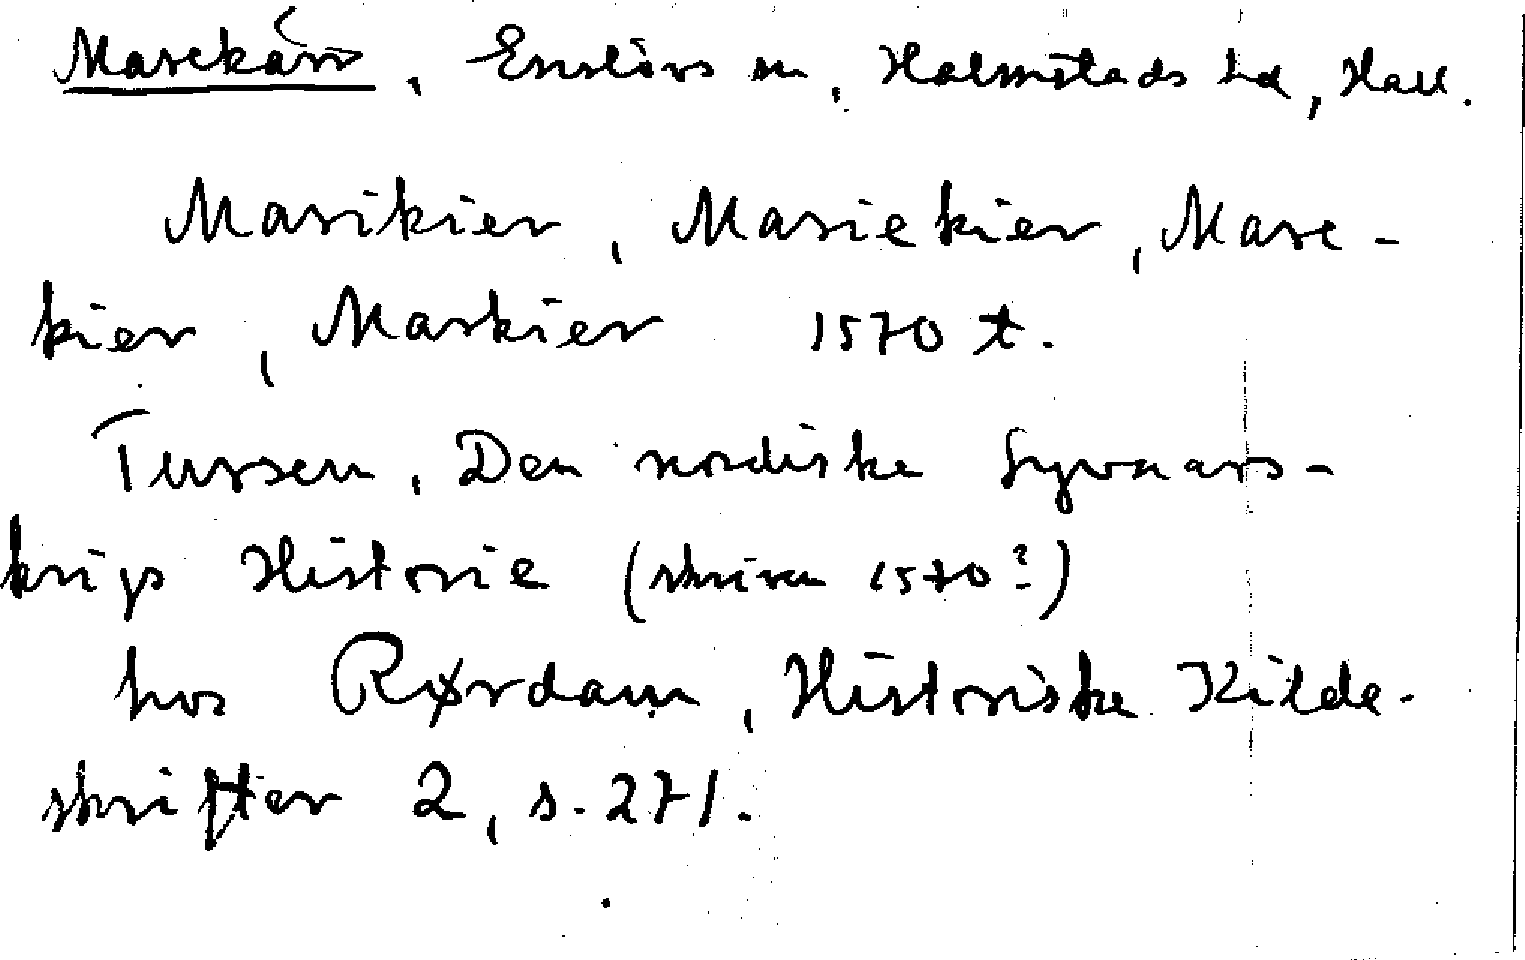 Marekärr, Enslövs sn, Halmstads hd, Hall.
Marikier, Mariekier, Mare-
kier, Markier 1570 t.
Tursen, Den nordiske Syvaars-
krigs Historie (skriven 1570?)
hos Rørdam, Historiske Kilde-
skrifter 2, s. 271.